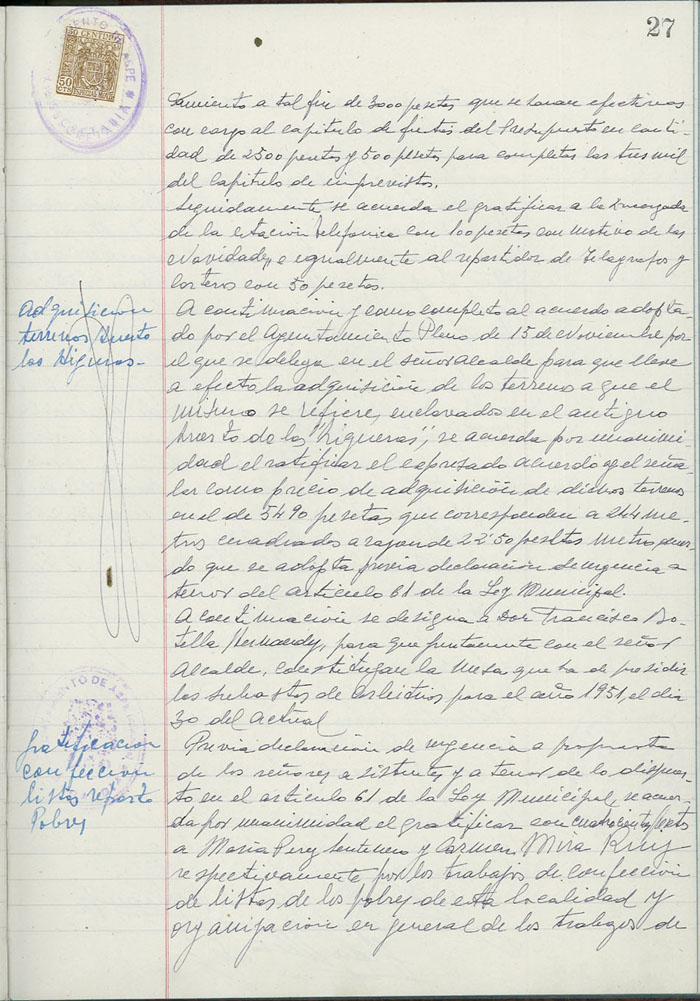 27
50 CENTIMOS
tamiento a tal fin de 3000 pesetas que se haran efectivas
con cargo al capitulo de fiestas del Presupuesto en canti-
dad de 2500 pesetas y 500 pesetas para completar las tres mil
del Capitulo de imprevistos.
Seguidamente se acuerda el gratificar a la Encargada
de la estacion telefonica con 100 pesetas con motivo de las
Navidades, e igualmente al repartidor de telegrafos y
carteros con 50 pesetas.
Adquisicion
terrenos Huerto
las Higueras-
A continuación y como completo al acuerdo adopta-
do por el Ayuntamiento Pleno de 15 de Noviembre por
el que se delega en el señor Alcalde para que lleve
a efecto la adquisición de los terreno a que el
mismo se refiere, enclavados en el antiguo
huerto de las "higueras", se acuerda por unanimi-
dad el ratificar el expresado acuerdo y el seña-
lar como precio de adquisición de dichos terreno
en el de 5490 pesetas que corresponden a 244 me-
tros cuadrados a razon de 22'50 pesetas metro, acuer-
do que se adopta previa declaracion de urgencia a
tenor del articulo 61 de la Ley Municipal.
A continuación se designa a Don Francisco Bo-
tella Hernandez, para que juntamente con el señor
Alcalde, constituyan la Mesa que ha de presidir
las subastas de Arbitrios para el año 1951, el dia
30 del actual
gratificacion
confeccion
listas reparto
Pobres
Previa declaración de urgencia a propuesta
de los señores asistentes y a tenor de lo dispues-
to en el articulo 61 de la Ley Municipal, se acuer-
da por unanimidad el gratificar con
a Maria Perez y Carmen Mira
respectivamente por los trabajos de confección
de listas de los pobres de esta localidad y
organización en general de los trabajos de